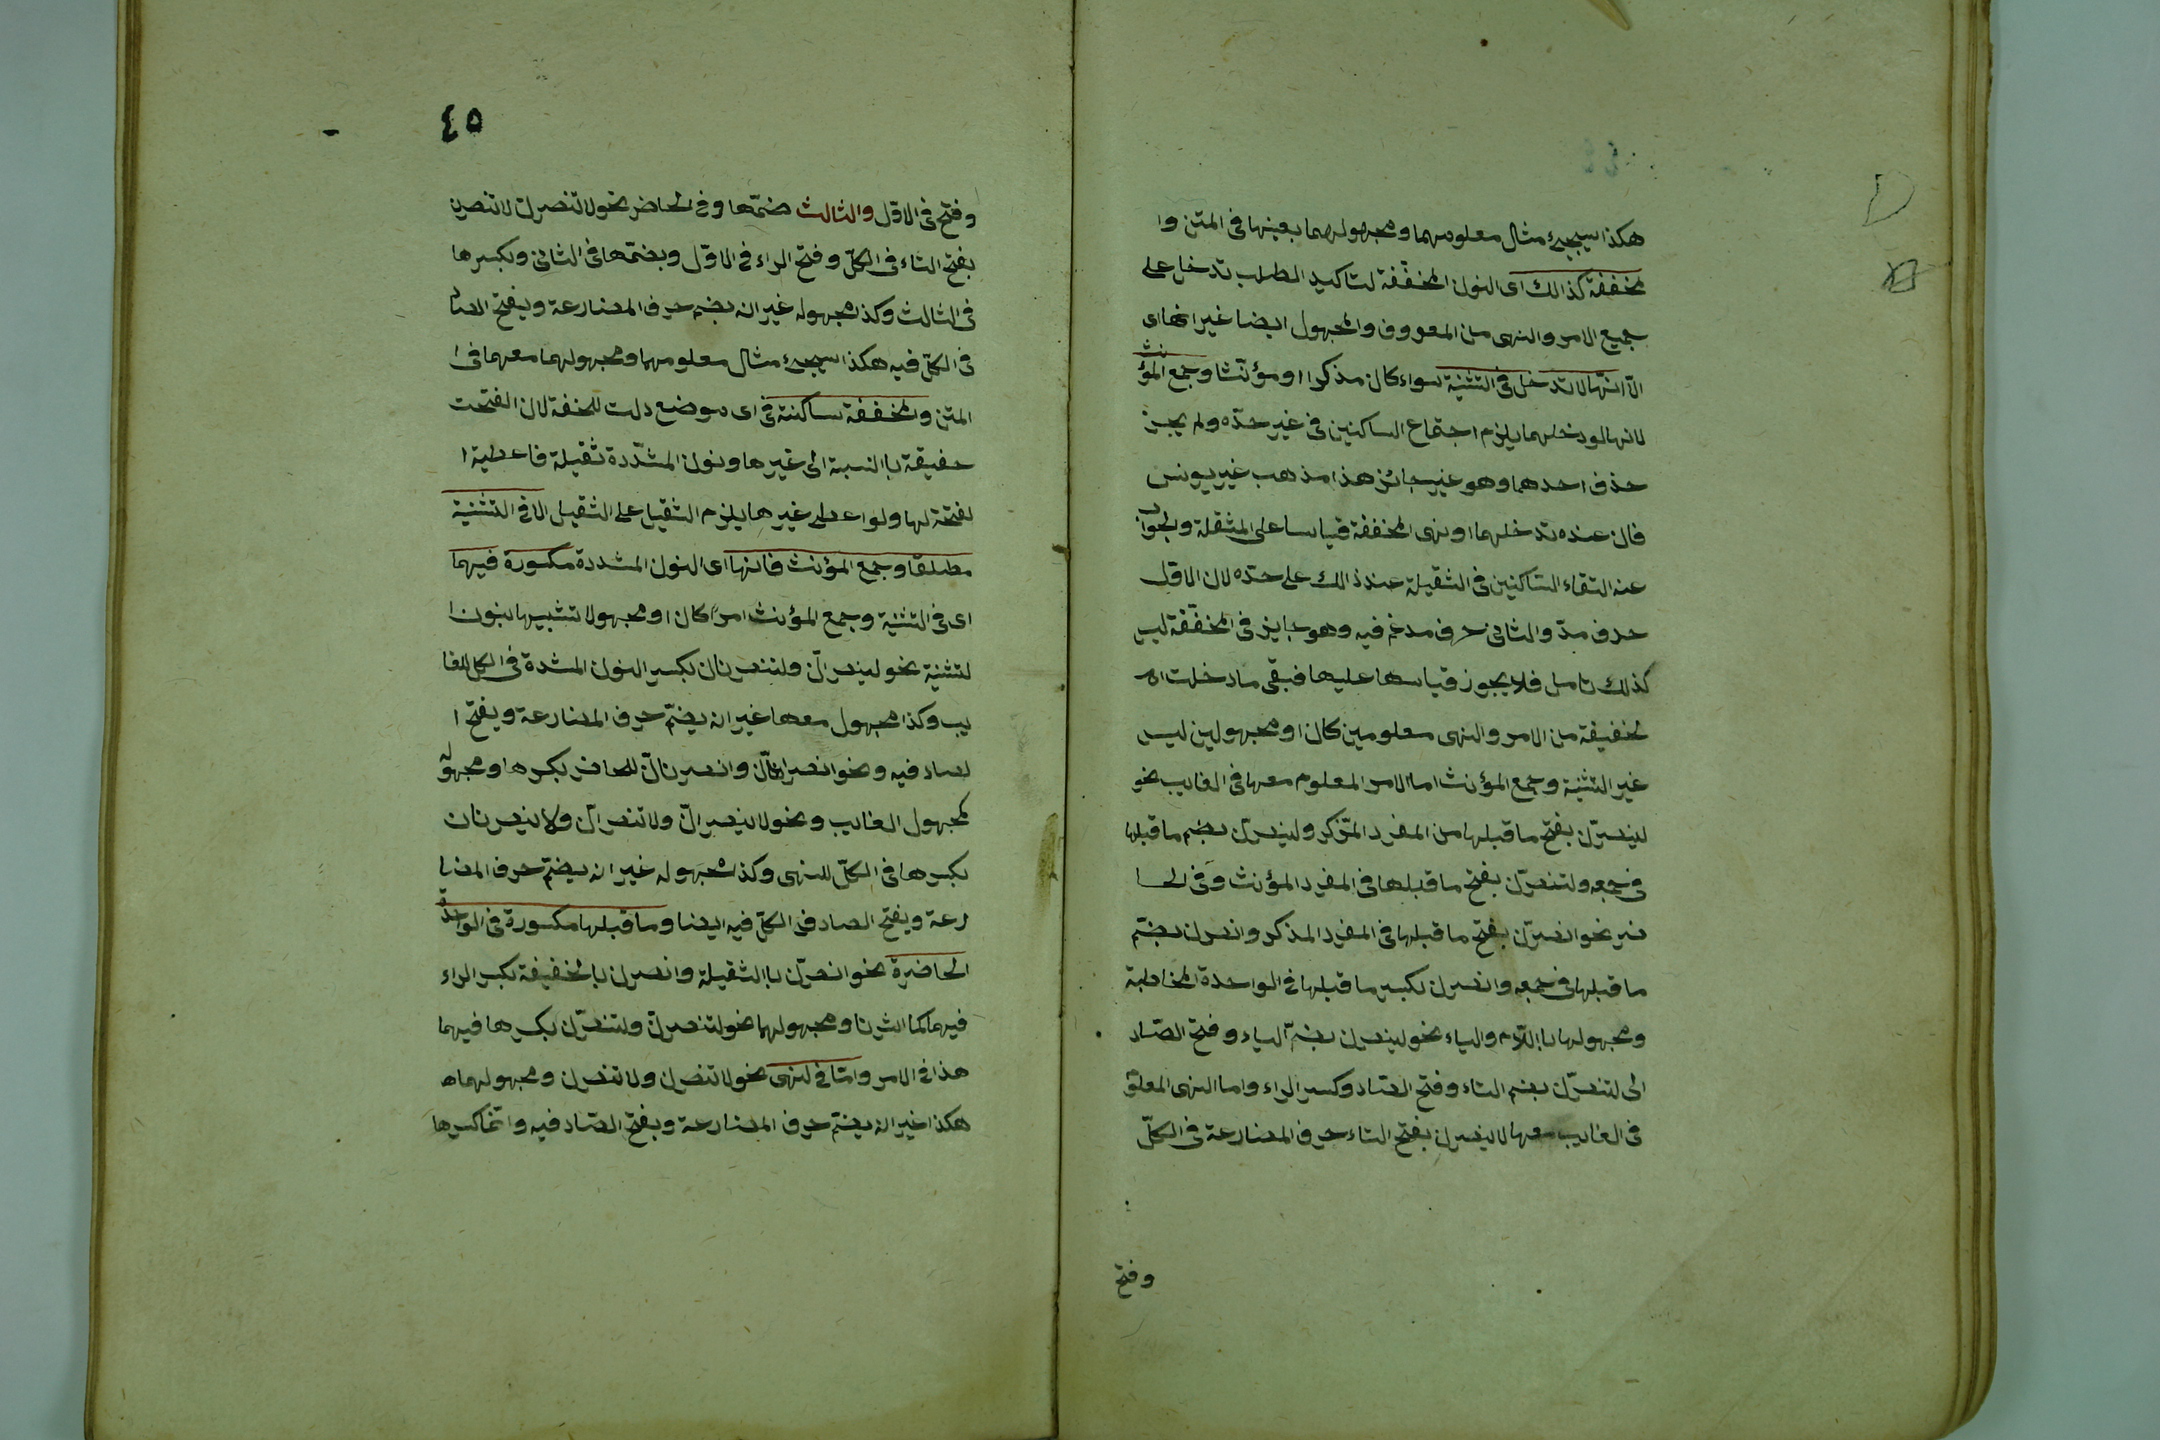 هكذا سيجيء مثال معلومهما ومجهولهما بعينها فى المتن وا
لمخففة كذالك اى النون المخفّفة لتاكيد الطلب تدخل على
جميع الامر والنهى من المعروف والمجهول ايضا غير انها اى
الّا انّها لا تدخل فى التثنية سواء كان مذكرا او مؤنّثا وجمع المؤنث
لانها لو دخلهما يلزم اجتماع الساكنين فى غير حدّه ولم يجز
حذف احدهما وهو غير جائز هذا مذهب غير يونس
فان عنده تدخلهما او نهى المخففة قياسا على المثقلة والجواب
عنه التقاء السّاكنين فى الثقيلة عند ذالك على حدّه لان الاول
حرف مدّ والثانى حرف مدغم فيه وهو جايز فى المخفّفة ليس
كذلك تامل فلا يجوز قياسها عليها فبقى ما دخلت
لخفيفة من الامر والنهى معلومين كان او مجهولين ليس
غير التثنية وجمع المؤنث اما الامر المعلوم معها فى الغايب نحو
لينصرّن بفتح ما قبلها من المفرد المذّكر ولينصرّن بضم ما قبلها
فى جمعه ولتنصرّن بفتح ما قبلها فى المفرد المؤنث وفى الحا
ضر نحو انصرّن بفتح ما قبلها فى المفرد المذكر وانصرن بضم
ما قبلها فى جمعه وانصرن بكسر ما قبلها فى الواحدة المخاطبة
ومجهولها باللّام والياء نحو لينصرن بضمّ الياء وفتح الصّاد
الى لتنصرّن بضم التاء وفتح الصّاد وكسر الراء واما النهى المعلوم
فى الغايب معها لا ينصرن بفتح التاء حرف المضارعة فى الكلّ
وفتح
٤٥
وفتح فى الاوّل والثالث ضمّها وفى الحاضر نحو لا تنصرن لا تنصرن
بفتح التاء فى الكلّ وفتح الراء فى الاوّل وبضمّها فى الثانى وبكسرها
فى الثالث وكذا مجهوله غير انه بضم حرف المضارعة ويفتح الصاد
فى الكلّ فيه هكذا سيجيء مثال معلومهما ومجهولهما معهما فى ا
المتن والمخففة ساكنة فى اى موضع دلت للخفة لان الفتحت
حفيقة با النسبة الى غيرها ونون المشدّدة ثقيلة فاعطية ا
لفتحة لها ولو اعطى غيرها يلزم الثقيل على الثقيل الا فى التثنية
مطلقا وجمع المؤنث فانها اى النون المشددة مكسورة فيهما
اى فى التثنية وجمع المؤنث امرا كان او مجهولا تشبيها بنون ا
لتثنية نحو لينصرانّ ولتنصرنان بكسر النون المشدة فى الكل للغا
يب وكذا مجهول معها غير انه يضمّ حرف المضارعة ويفتح ا
لصاد فيه ونحو انصرانّ وانصرنانّ للحاضر بكسرها ومجهوله
كمجهول الغايب ونحو لا ينصرانّ ولا تنصرانّ ولا ينصرنان
بكسرها فى الكلّ للنهى وكذا مجهوله غير انه يضم حرف المضا
رعة ويفتح الصاد فى الكلّ فيه ايضا وما قبلها مكسورة فى الواحدة
الحاضرة نحو انصرّن با الثقيلة وانصرن با الخفيفة بكسر الراء
فيهما كما اشرنا ومجهولهما نحو لتنصرنّ ولتنصرّن بكسرها فيهما
هذا فى الامر وامّا فى لنهى نحو لا تنصرن ولا تنصرن ومجهولهما
هكذا غير انه يضم حرف المضارعة وبفتح الصّاد فيه وانّما كسرها